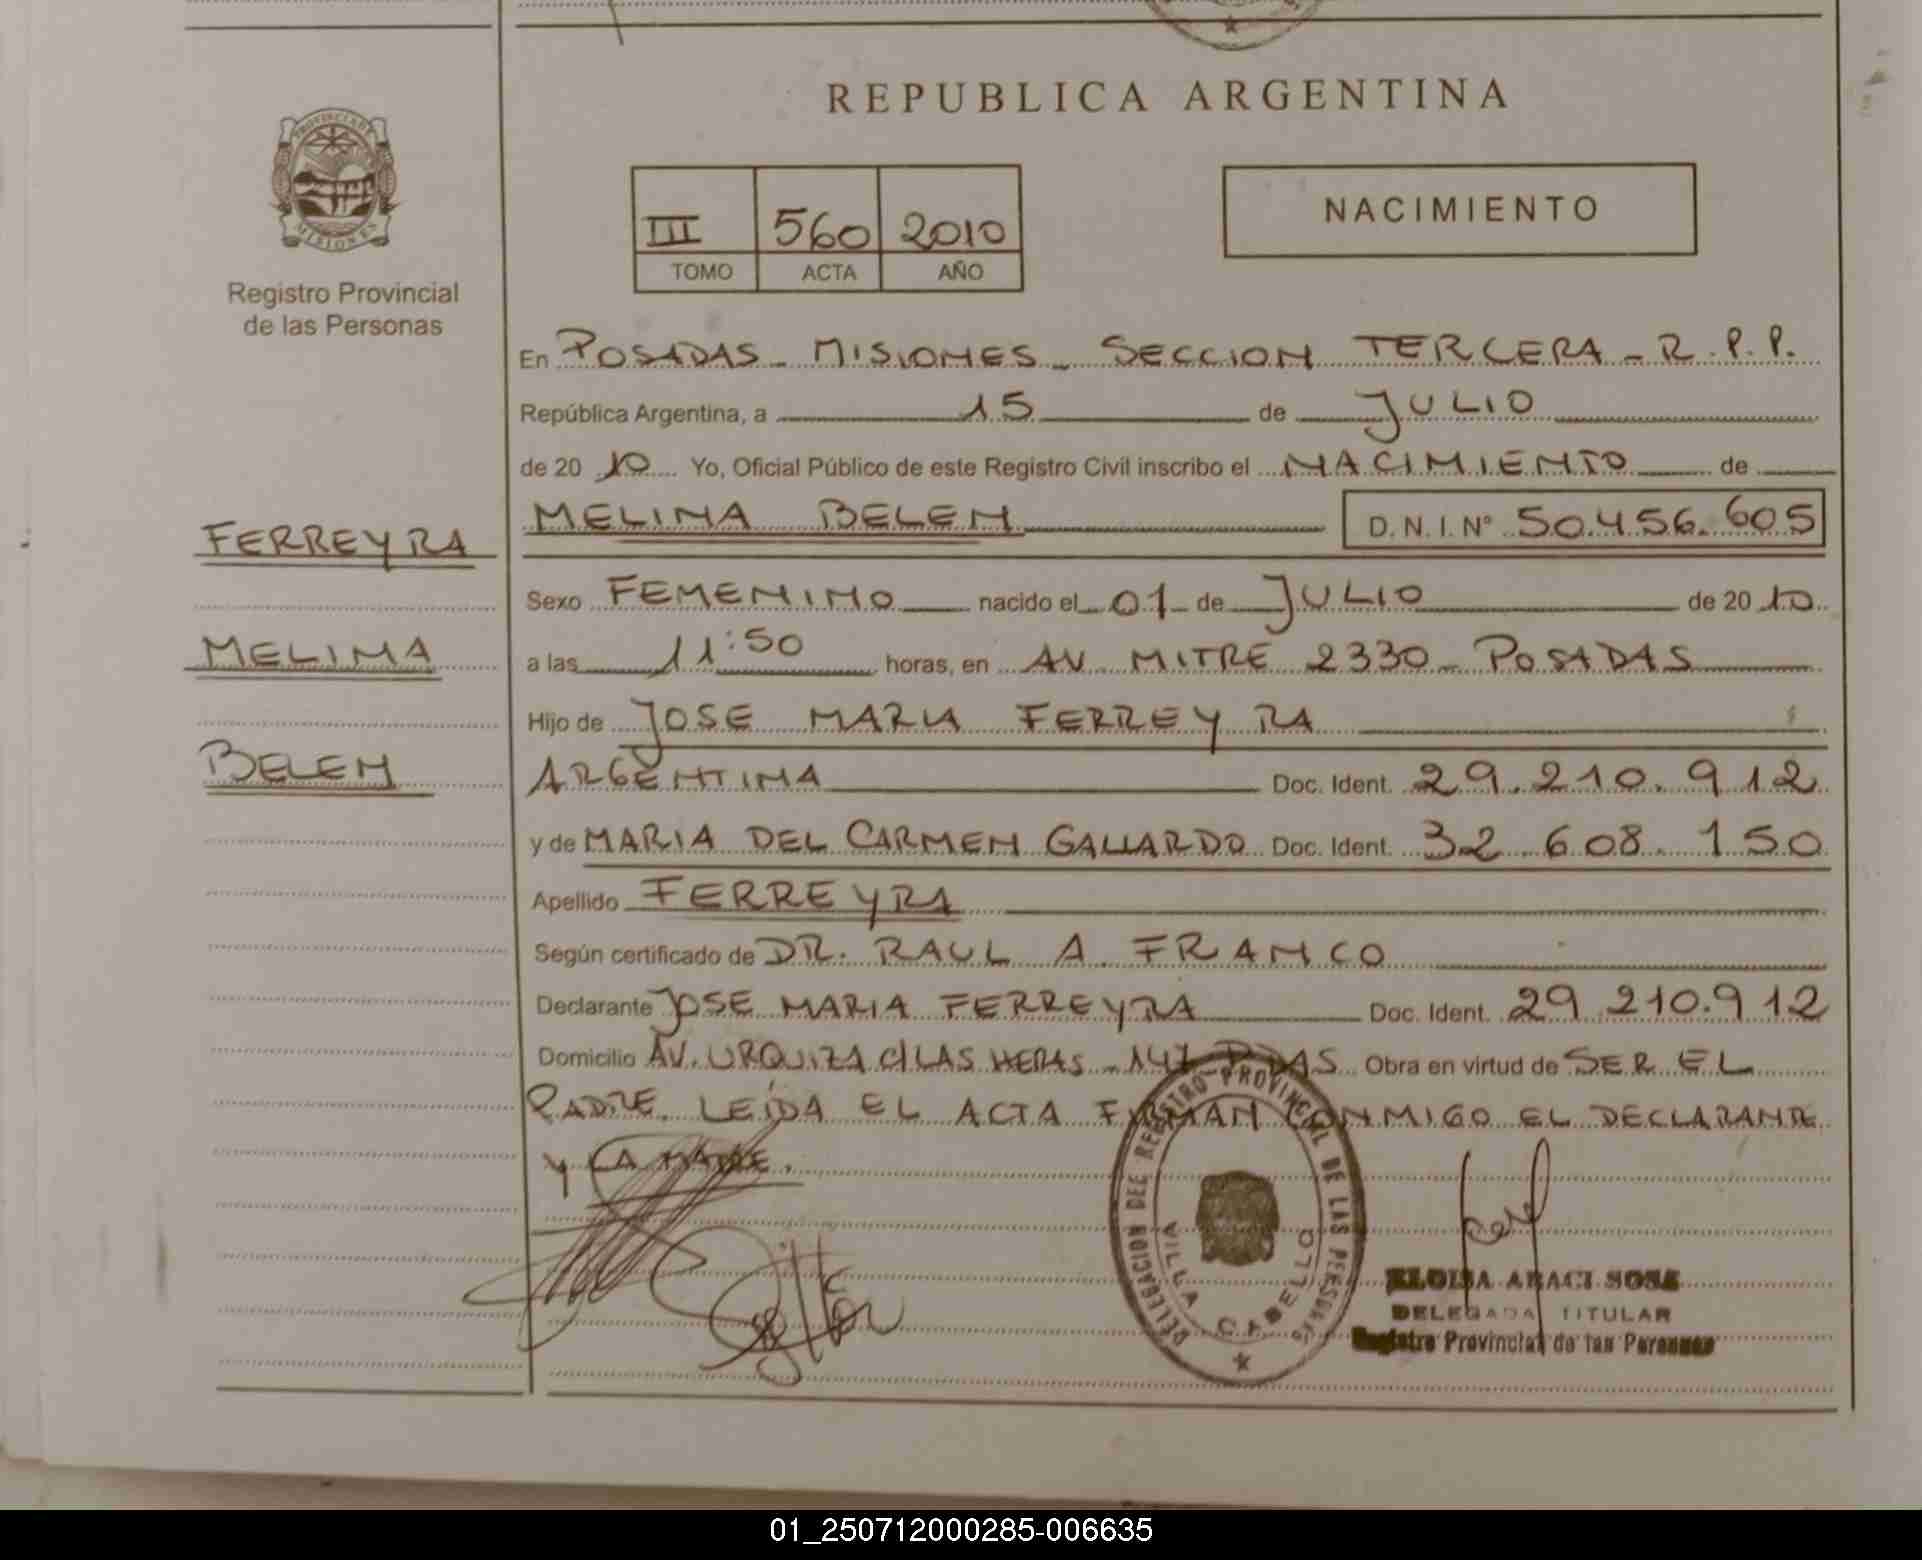 REPUBLICA ARGENTINA
PROVINCIA DE
MISIONES
Registro Provincial
de las Personas
III 560 2010
TOMO ACTA AÑO
NACIMIENTO
En POSADAS - MISIONES - SECCION TERCERA - R.P.P.
República Argentina, a 15 de JULIO
de 20 10 Yo, Oficial Público de este Registro Civil inscribo el NACIMIENTO de
MELINA BELEN D.N.I.Nº 50.456.605
FERREYRA
Sexo FEMENINO nacido el 01 de JULIO de 20 10
MELINA
a las 11:50 horas, en AV. MITRE 2330 - POSADAS
Hijo de JOSE MARIA FERREYRA
BELEN
ARGENTINA Doc. Ident. 29.210.912
y de MARIA DEL CARMEN GALLARDO Doc. Ident. 32.608.150
Apellido FERREYRA
Según certificado de DR. RAUL A. FRANCO
Declarante JOSE MARIA FERREYRA Doc. Ident. 29.210.912
Domicilio AV. URQUIZA C/LAS HERAS - 147 PDAS Obra en virtud de SER EL
PADRE. LEÍDA EL ACTA FIRMAN CONMIGO EL DECLARANTE
Y LA MADRE.
DELEGACION DEL REGISTRO PROVINCIAL DE LAS PERSONAS
VILLA CABELLO
ELOISA ARACI SOSA
DELEGADA TITULAR
Registro Provincial de las Personas
01_250712000285-006635